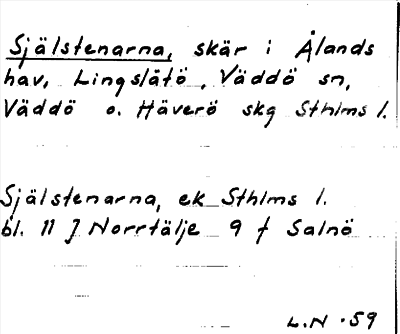 Själstenarna, skär i Ålands
hav, Lingslätö, Väddö sn,
Väddö o. Häverö skg Sthlms l.
Själstenarna, ek Sthlms l.
bl. 11 J Norrtälje 9 f Salnö
L.N. 59